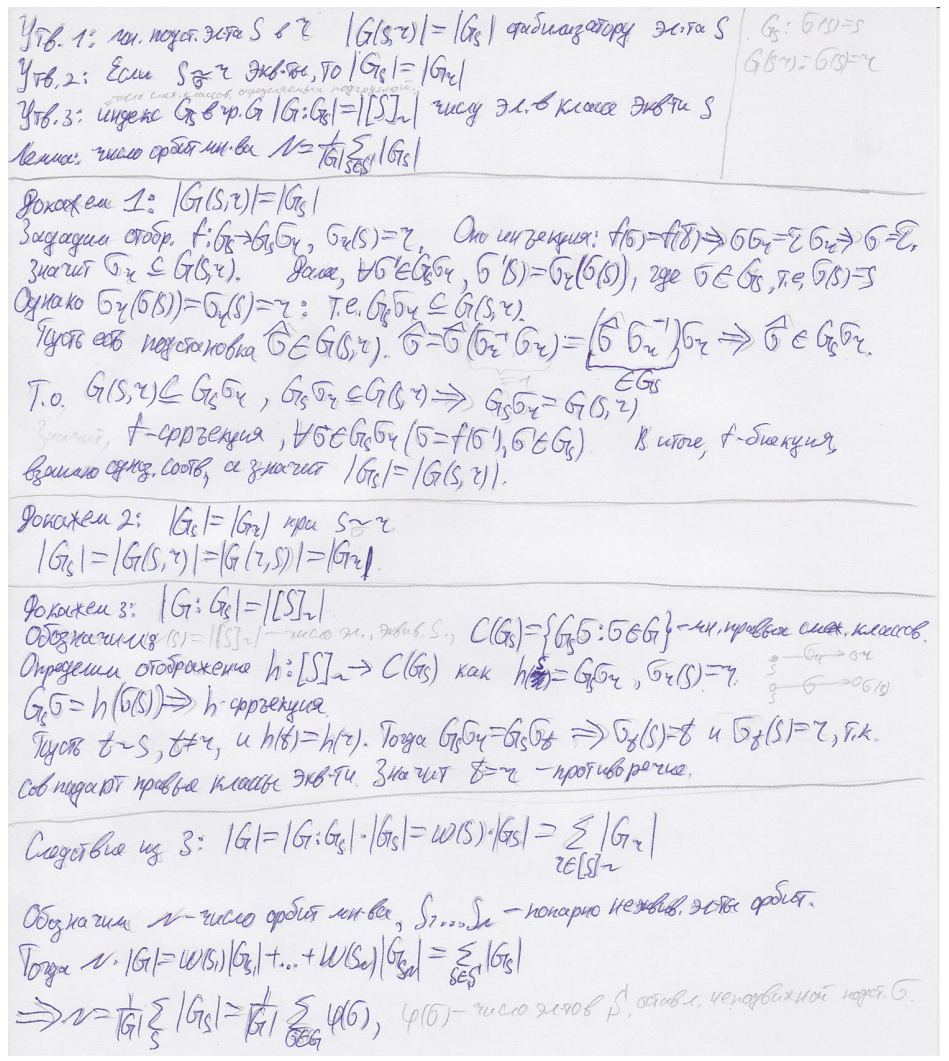 Утв. 1: мн. подст. эл-та S в r |G(s,r)|=|G_s| стабилизатору эл-та S
G_s: σ(s)=s
G(s,r): σ(s)=r
Утв. 2: Если s ~ r экв-ты, то |G_s|=|G_r|
число смеж. классов, определяемых подгруппой
Утв. 3: индекс G_s в гр. G |G:G_s|=|[S]~| числу эл. в классе экв-ти S
Лемма: число орбит мн-ва N=1/|G| Σ_{s∈S} |G_s|
Докажем 1: |G(s,r)|=|G_s|
Зададим отобр. f: G_s→G_sσ_r, σ_r(s)=r. Оно инъекция: f(σ)=f(τ)⇒σσ_r=τσ_r⇒σ=τ.
Значит σ_r ⊆ G(s,r). Далее, ∀σ'∈G_sσ_r, σ'(s)=σ_r(σ(s)), где σ∈G_s, т.е. σ(s)=s
Однако σ_r(σ(s))=σ_r(s)=r: т.е. G_sσ_r ⊆ G(s,r).
Пусть есть подстановка σ̂∈G(s,r). σ̂=σ̂(σ_r⁻¹σ_r)=(σ̂σ_r⁻¹)σ_r ⇒ σ̂∈G_sσ_r.
=1 ∈G_s
Т.о. G(s,r)⊆G_sσ_r, G_sσ_r⊆G(s,r) ⇒ G_sσ_r=G(s,r)
Значит, f-сюръекция, ∀σ∈G_sσ_r (σ=f(σ'), σ'∈G_s) В итоге, f-биекция,
взаимно одноз. соотв, а значит |G_s|=|G(s,r)|.
Докажем 2: |G_s|=|G_r| при s~r
|G_s|=|G(s,r)|=|G(r,s)|=|G_r|
Докажем 3: |G:G_s|=|[S]~|
Обозначим (s)=|[S]~| - число эл., эквив. S., C(G_s)={G_sσ:σ∈G} - мн. правых смеж. классов.
Определим отображение h:[S]~→C(G_s) как h(s)=G_sσ_r, σ_r(s)=r.
s σ_r r
s σ σ(s)
G_sσ=h(σ(s))⇒h-сюръекция
Пусть t~s, t≠r, и h(t)=h(r). Тогда G_sσ_r=G_sσ_t ⇒σ_t(s)=t и σ_t(s)=r, т.к.
совпадают правые классы экв-ти. Значит t=r - противоречие.
Следствие из 3: |G|=|G:G_s|·|G_s|=w(s)·|G_s|= Σ_{r∈[S]~} |G_r|
Обозначим N-число орбит мн-ва, S₁...S_N - попарно неэквив. эл-ты орбит.
Тогда N·|G|=w(s₁)|G_{s₁}|+...+w(s_N)|G_{s_N}|= Σ_{s∈S} |G_s|
⇒N=1/|G| Σ_S |G_s|=1/|G| Σ_{σ∈G} φ(σ), φ(σ)-число эл-тов S, оставл. неподвижной подст. σ.